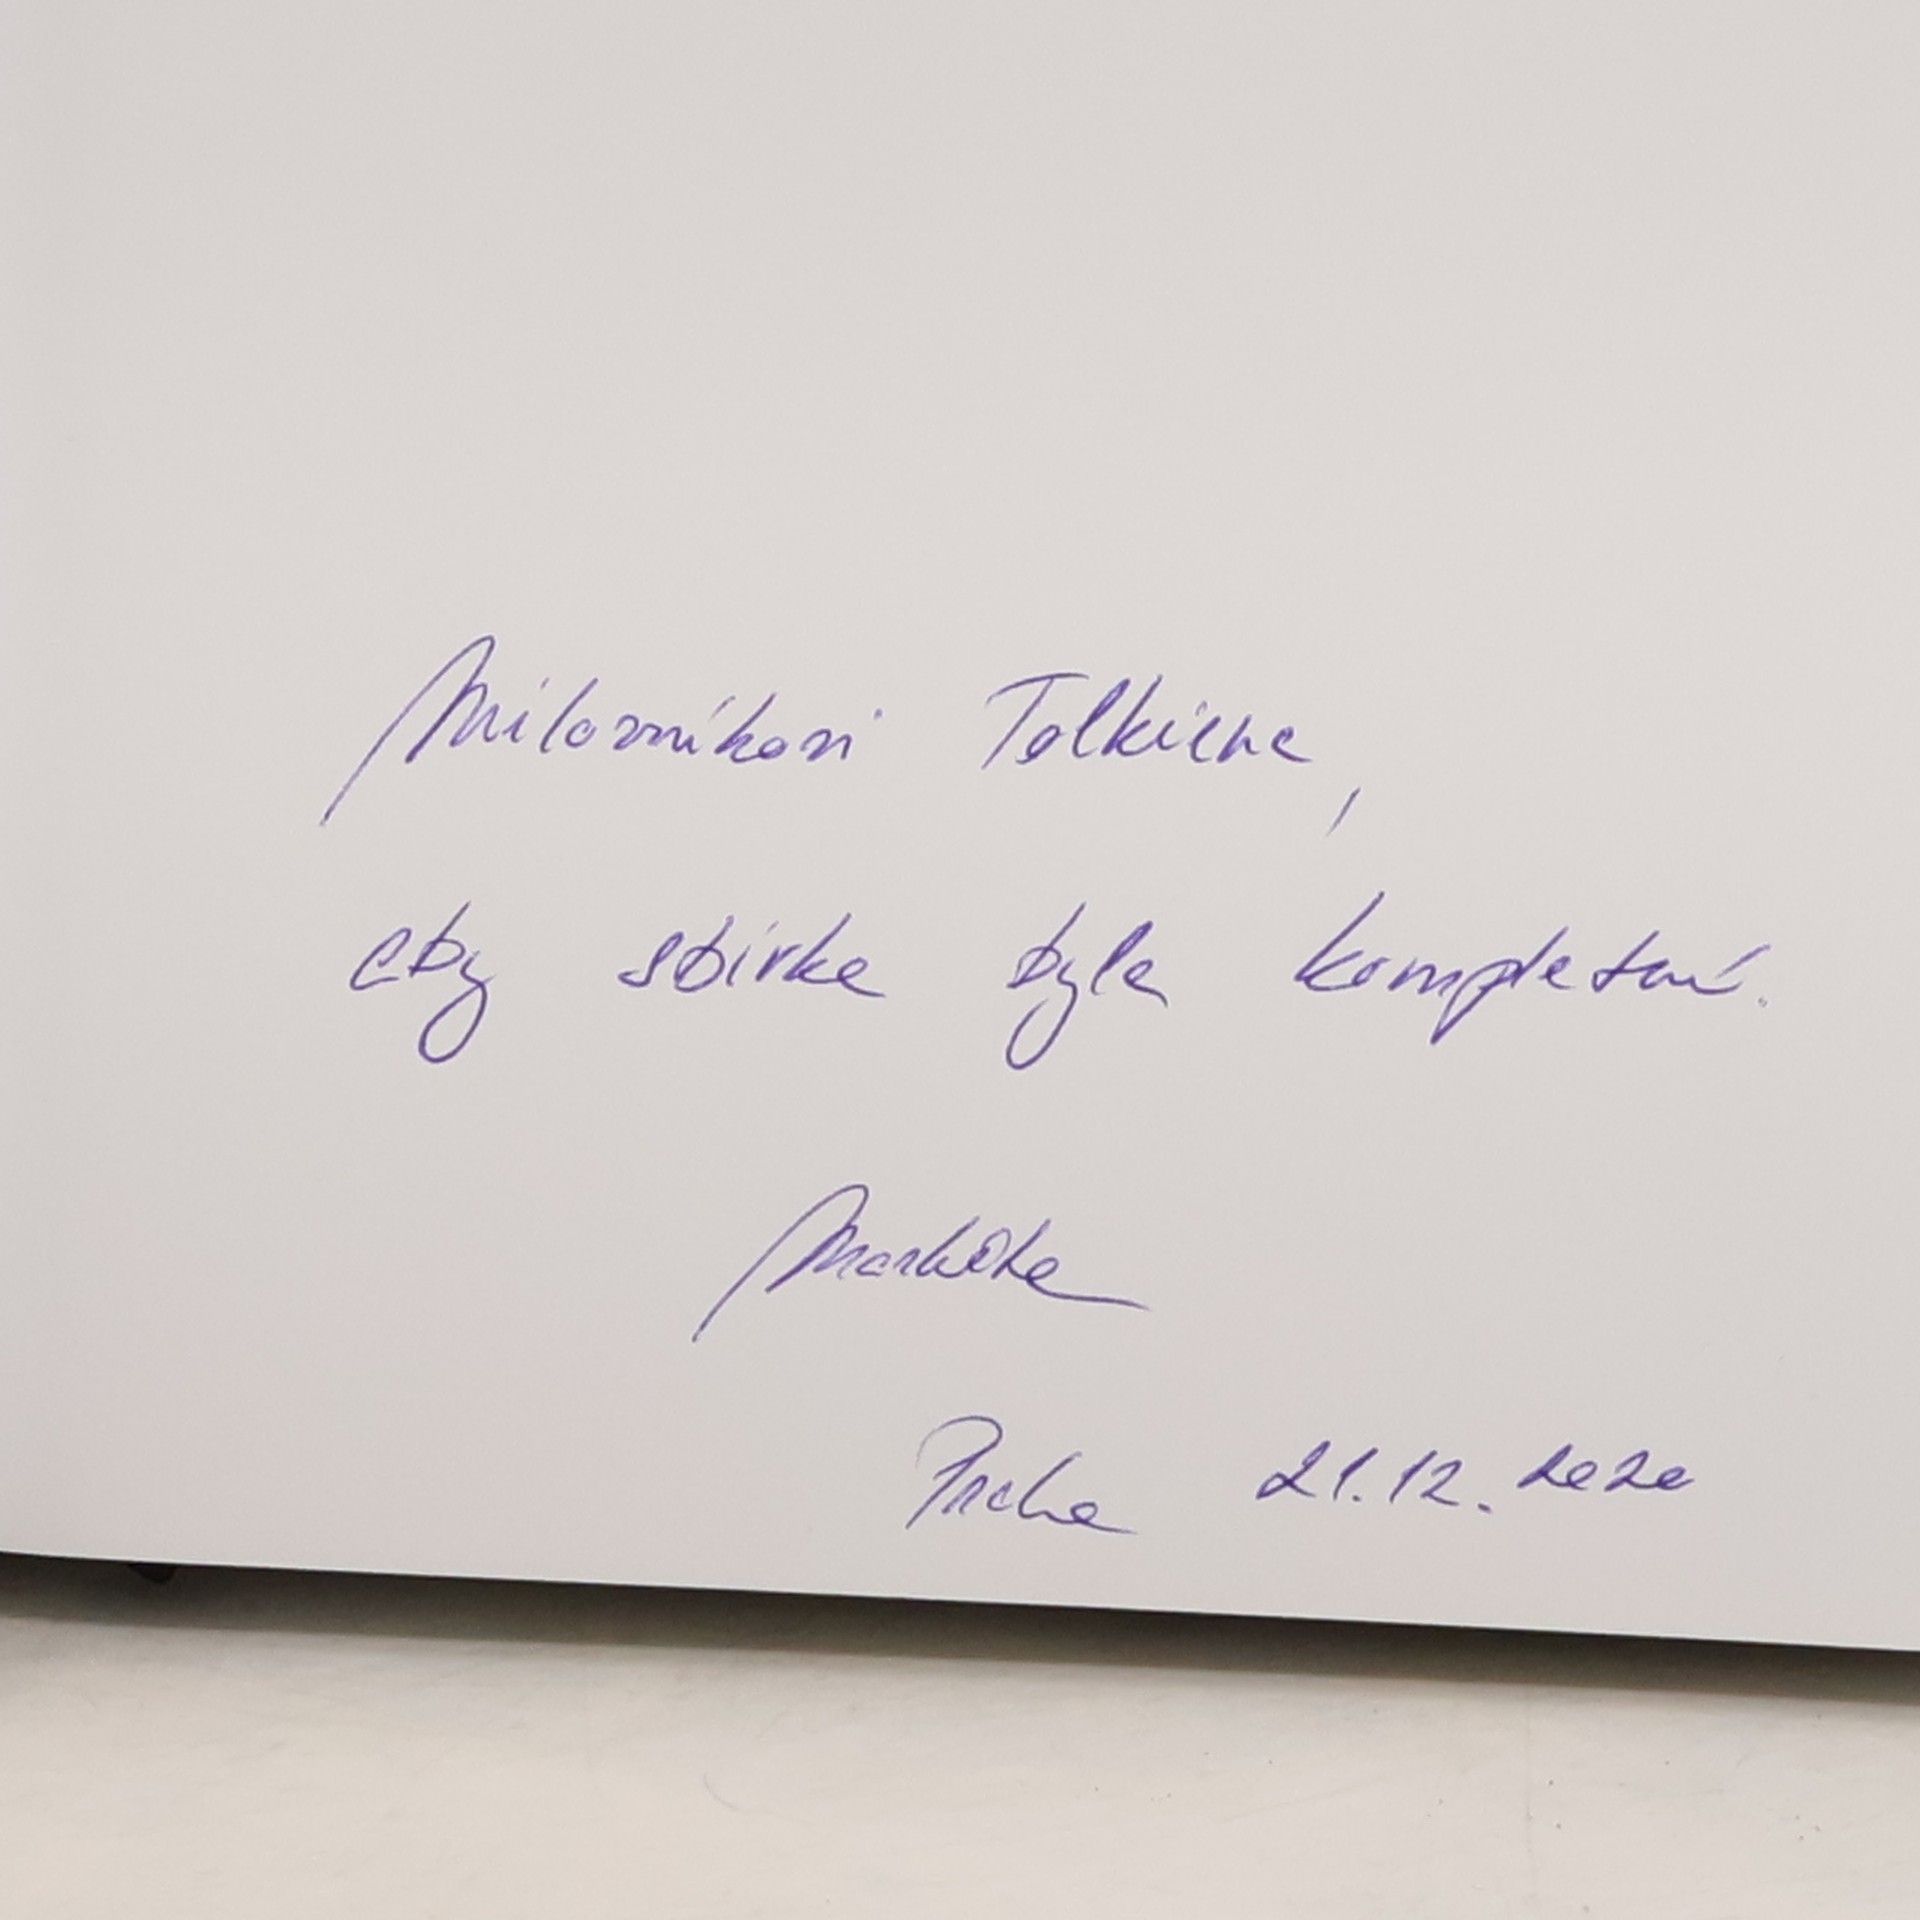 Milovníkovi Tolkiena,
aby sbírka byla kompletní.
Markéta
Praha 21.12.2020